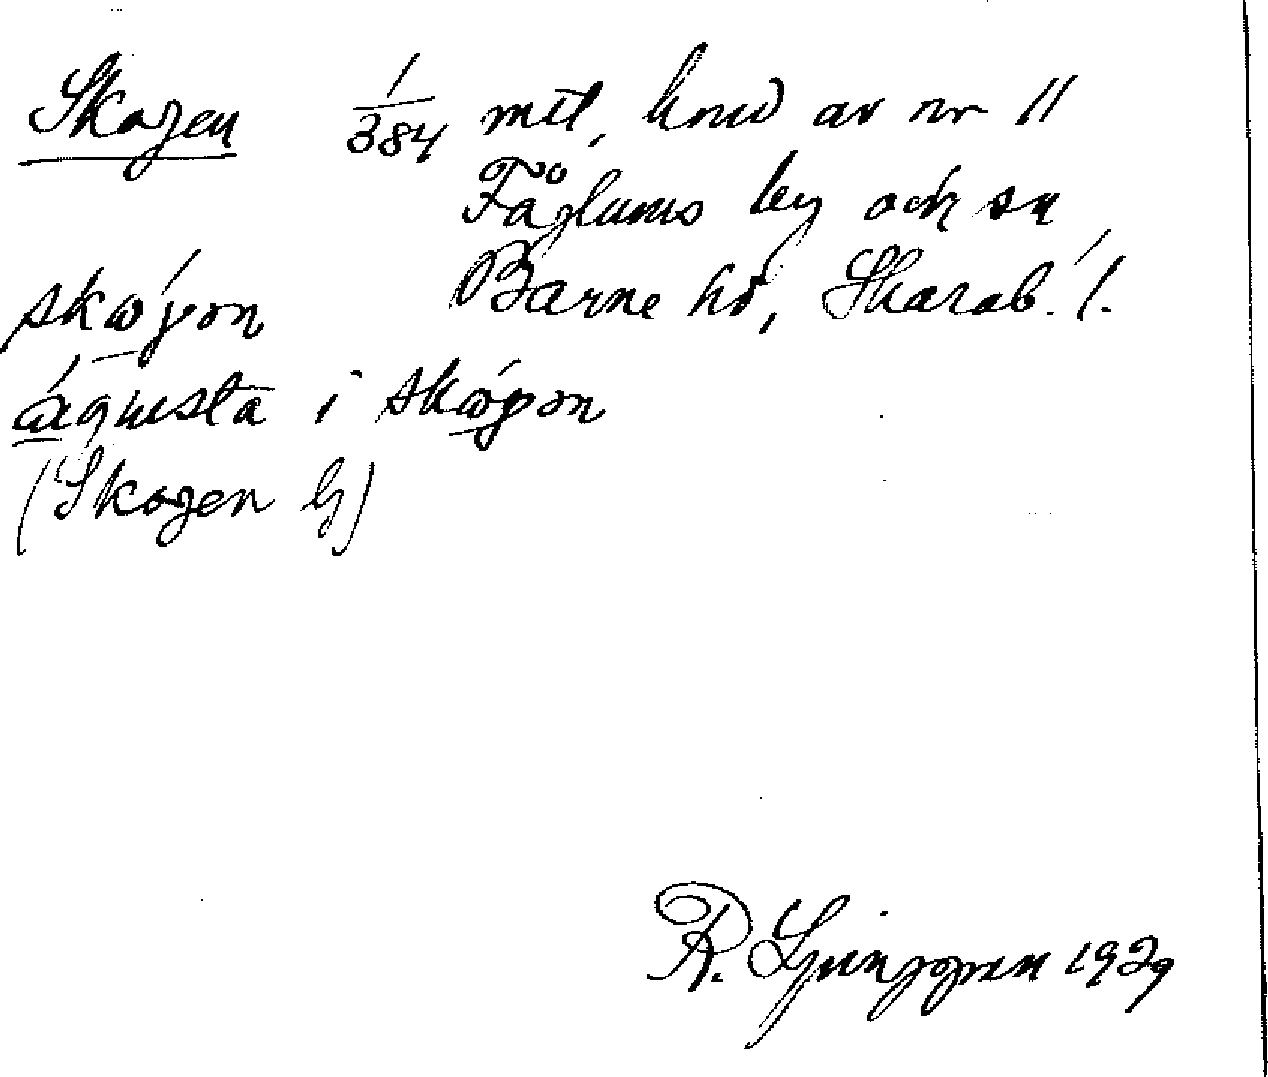 Skogen 1/384 mtl, kruv av nr 11
Fåglums by och sn
Barne hd, Skarab. l.
skωγən
águsta i skωγən
(Skogen G)
R. Ljunggren 1929